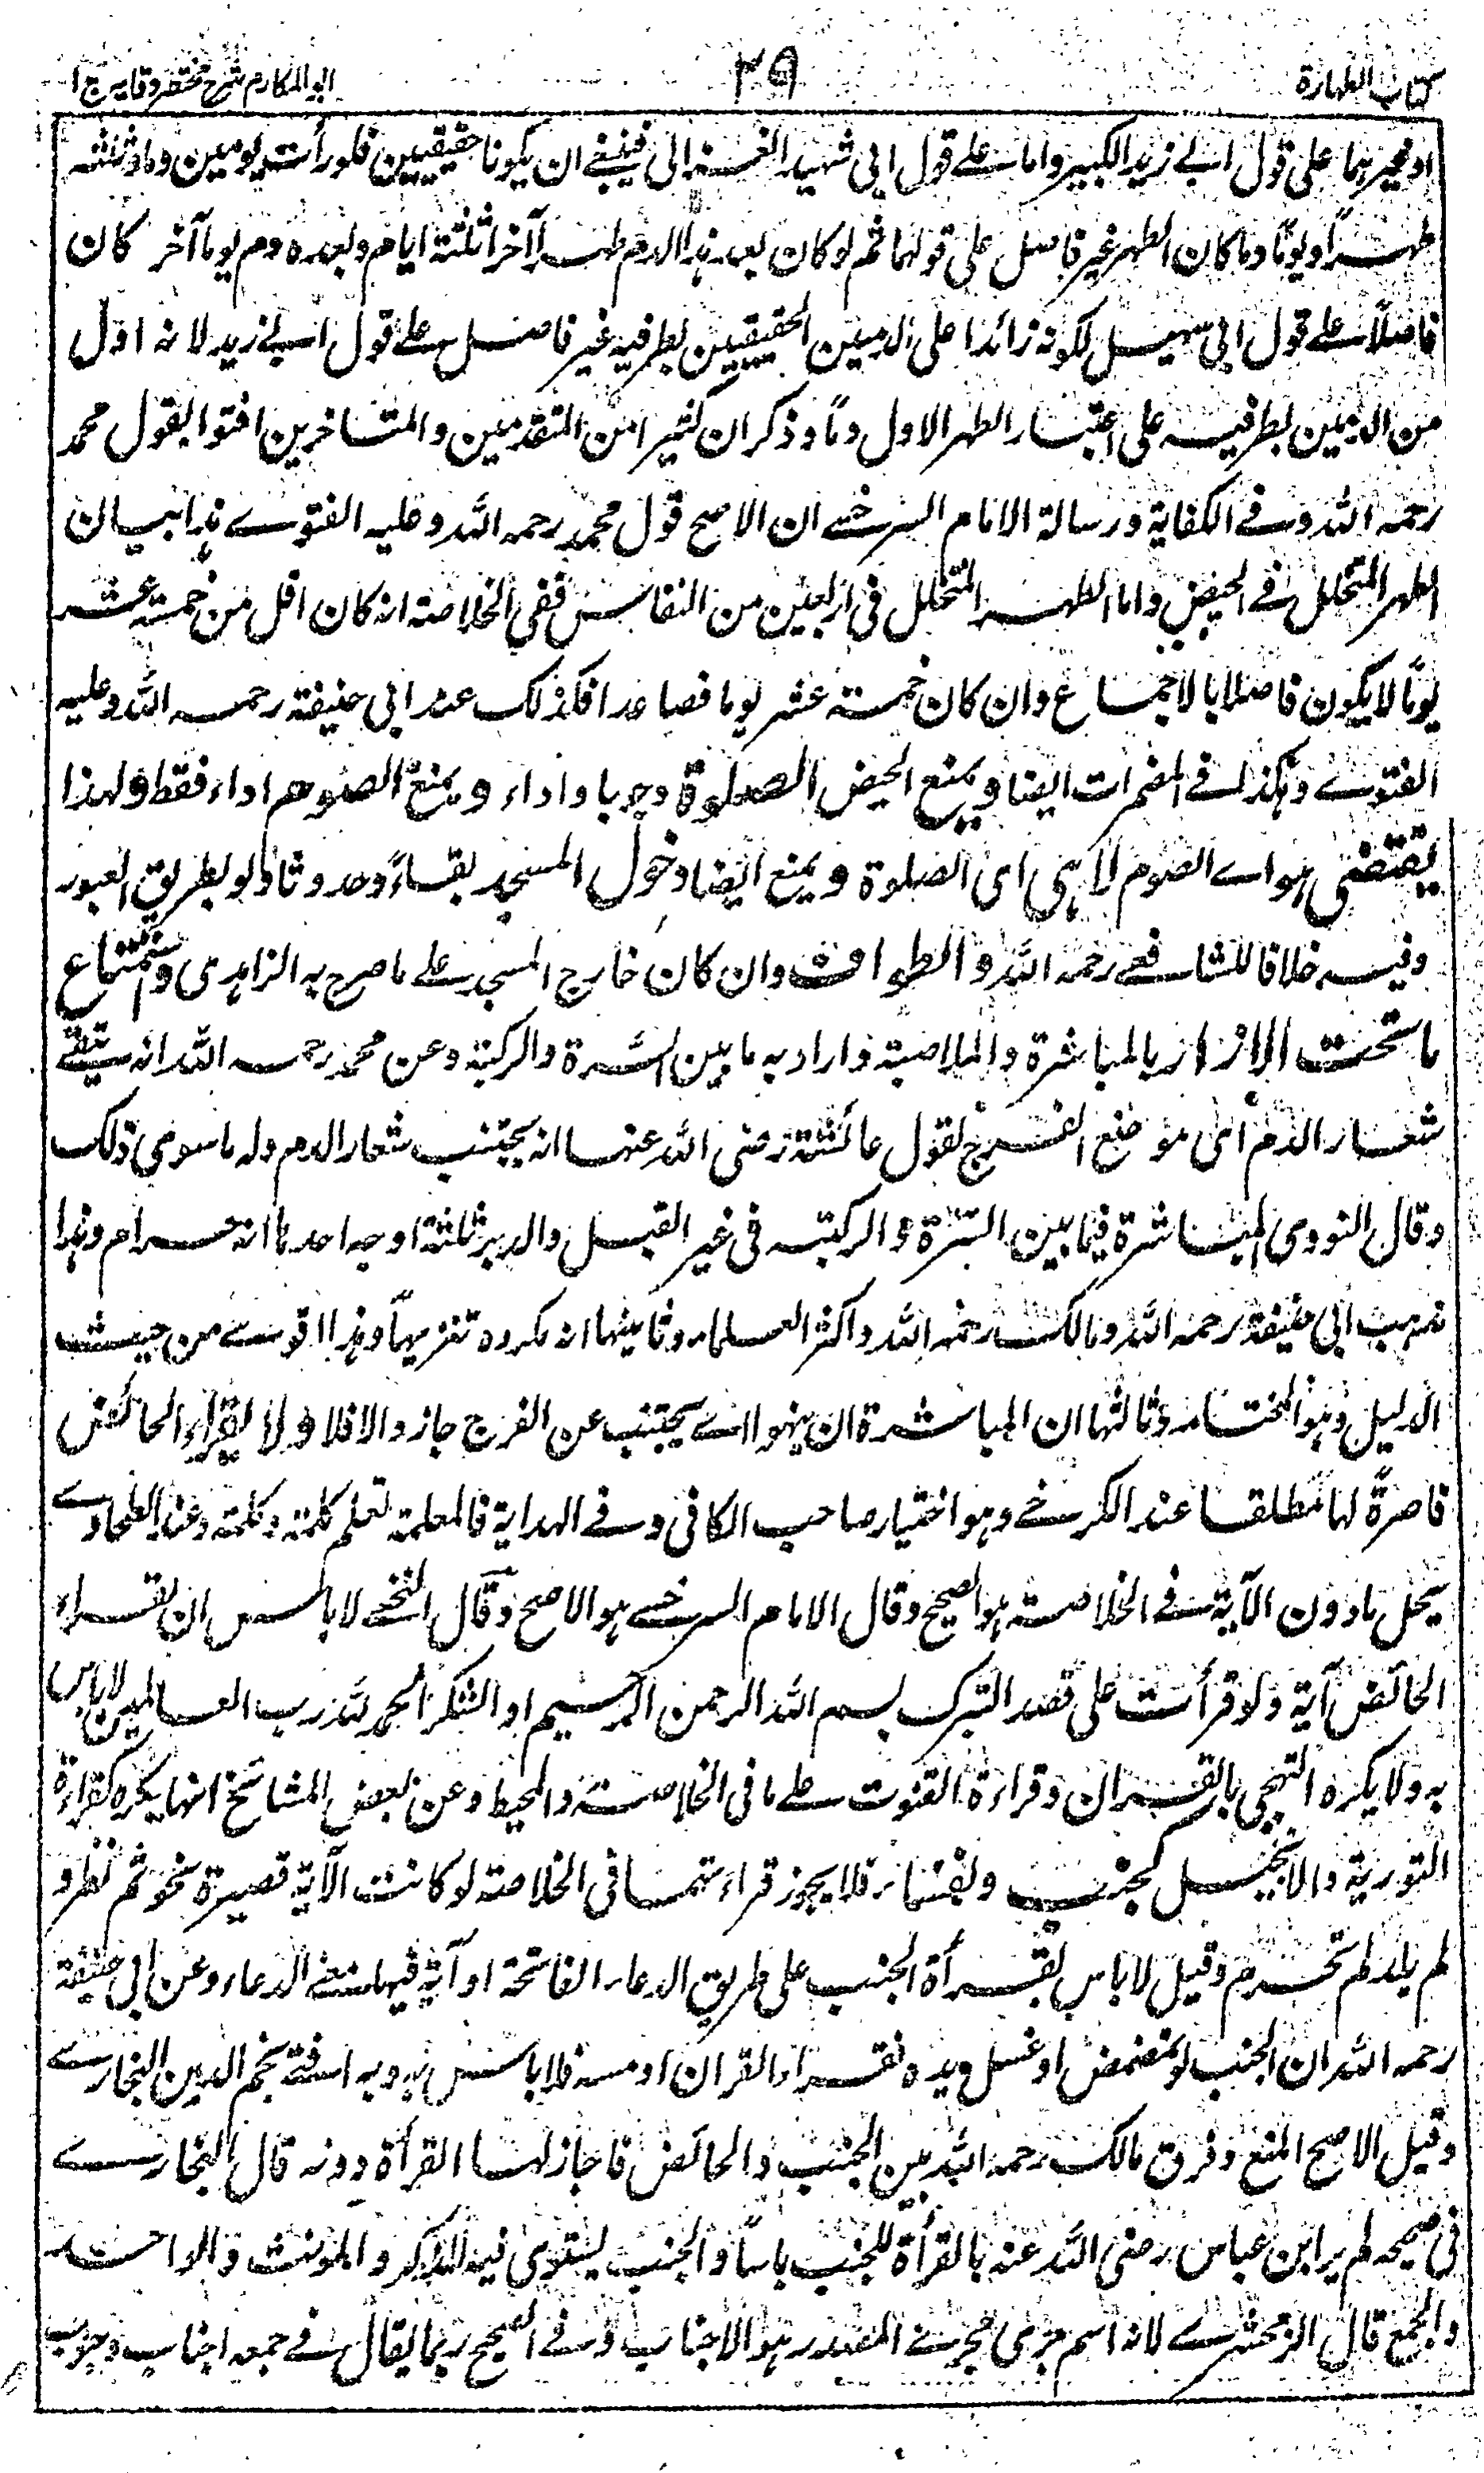 كتاب الطهارة ٣٩ ابو المكارم شرح مختصر وقايه ج ا
او غيرهما على قول ابي زيد الكبير واما على قول ابي سهيل الغزالي فينبغي ان يكونا حقيقيين فلو رأت يومين دما وثلثة
طهرا ويوما دما كان الطهر غير فاصل على قولهما ثم لو كان بعد هذا الدم طهرا آخر اثلثة ايام وبعده دم يوما آخر كان
فاصلا على قول ابي سهيل لكونه زائدا على الدمين الحقيقيين بطرفيه غير فاصل على قول ابي زيد لانه اول
من الدمين بطرفيه على اعتبار الطهر الاول دما وذكر ان كثيرا من المتقدمين والمتاخرين افتوا بقول محمد
رحمه الله وفي الكفاية ورسالة الامام السرخسي ان الاصح قول محمد رحمه الله وعليه الفتوى هذا بيان
الطهر المتخلل في الحيض واما الطهر المتخلل في اربعين من النفاس ففي الخلاصة انه كان اقل من خمسة عشر
يوما لا يكون فاصلا بالاجماع وان كان خمسة عشر يوما فصاعدا فكذلك عند ابي حنيفة رحمه الله وعليه
الفتوى وهكذا في المضمرات ايضا ويمنع الحيض الصلوة وجوبا واداء ويمنع الصوم اداء فقط ولهذا
يقتضى هو اي الصوم لا هي اى الصلوة ويمنع ايضا دخول المسجد بقاء وحدوثا ولو بطريق العبور
وفيه خلافا للشافعي رحمه الله والطواف وان كان خارج المسجد على ما صرح به الزاهدى واستمتاع
ما تحت الازار بالمباشرة والملاصبة واراد به ما بين السرة والركبة وعن محمد رحمه الله انه يتقي
شعار الدم اى موضع الفرج لقول عائشة رضى الله عنها انه يجتنب شعار الدم وله ما سوى ذلك
وقال النووى المباشرة فيما بين السرة والركبة في غير القبل والدبر ثلثة اوجه احدها انه حرام وهذا
مذهب ابي حنيفة رحمه الله ومالك رحمه الله واكثر العلماء وثانيها انه مكروه تنزيها وهذا اقوى من حيث
الدليل وهو المختار وثالثها ان المباشرة ان يهوا اي يجتنب عن الفرج جاز والا فلا ولا يقراء الحائض
قاصرة لها مطلقا عند الكرخي وهو اختيار صاحب الكافى وفي الهداية فالمعلمة تعلم كلمة وكلمة وعند الطحاوي
يحل ما دون الآية في الخلاصة هو الصحيح وقال الامام السرخسي هو الاصح وقال النخعي لا باس ان تقراء
الحائض آية ولو قرأت على قصد التبرك بسم الله الرحمن الرحيم او الشكر الحمد لله رب العالمين لا باس
به ولا يكره التهجي بالقران وقراءة القنوت على ما في الخلاصة والمحيط وعن بعض المشائخ انها يكره كقراءة
التورية والانجيل كجنب ونفساء فلا يجوز قراءتهما في الخلاصة لو كانت الآية قصيرة نحو ثم نظر و
لم يلد لم تحرم وقيل لا باس بقرأة الجنب على طريق الدعاء الفاتحة او آية فيها معنى الدعاء وعن ابي حنيفة
رحمه الله ان الجنب لو تمضمض او غسل ويده فقراء القران او مسه فلا باس به وبه افتى نجم الدين البخاري
وقيل الاصح المنع وفرق مالك رحمه الله بين الجنب والحائض فاجاز لها القرأة دونه قال البخاري
في صحيحه لم ير ابن عباس رضى الله عنه بالقرأة للجنب باسا والجنب يستوى فيه المذكر والمونث والواحد
والجمع قال الزمخشري لانه اسم جرى مجرى المصدر هو الاجناب وفي الصحيح ربما يقال في جمعه اجناب وجنوب